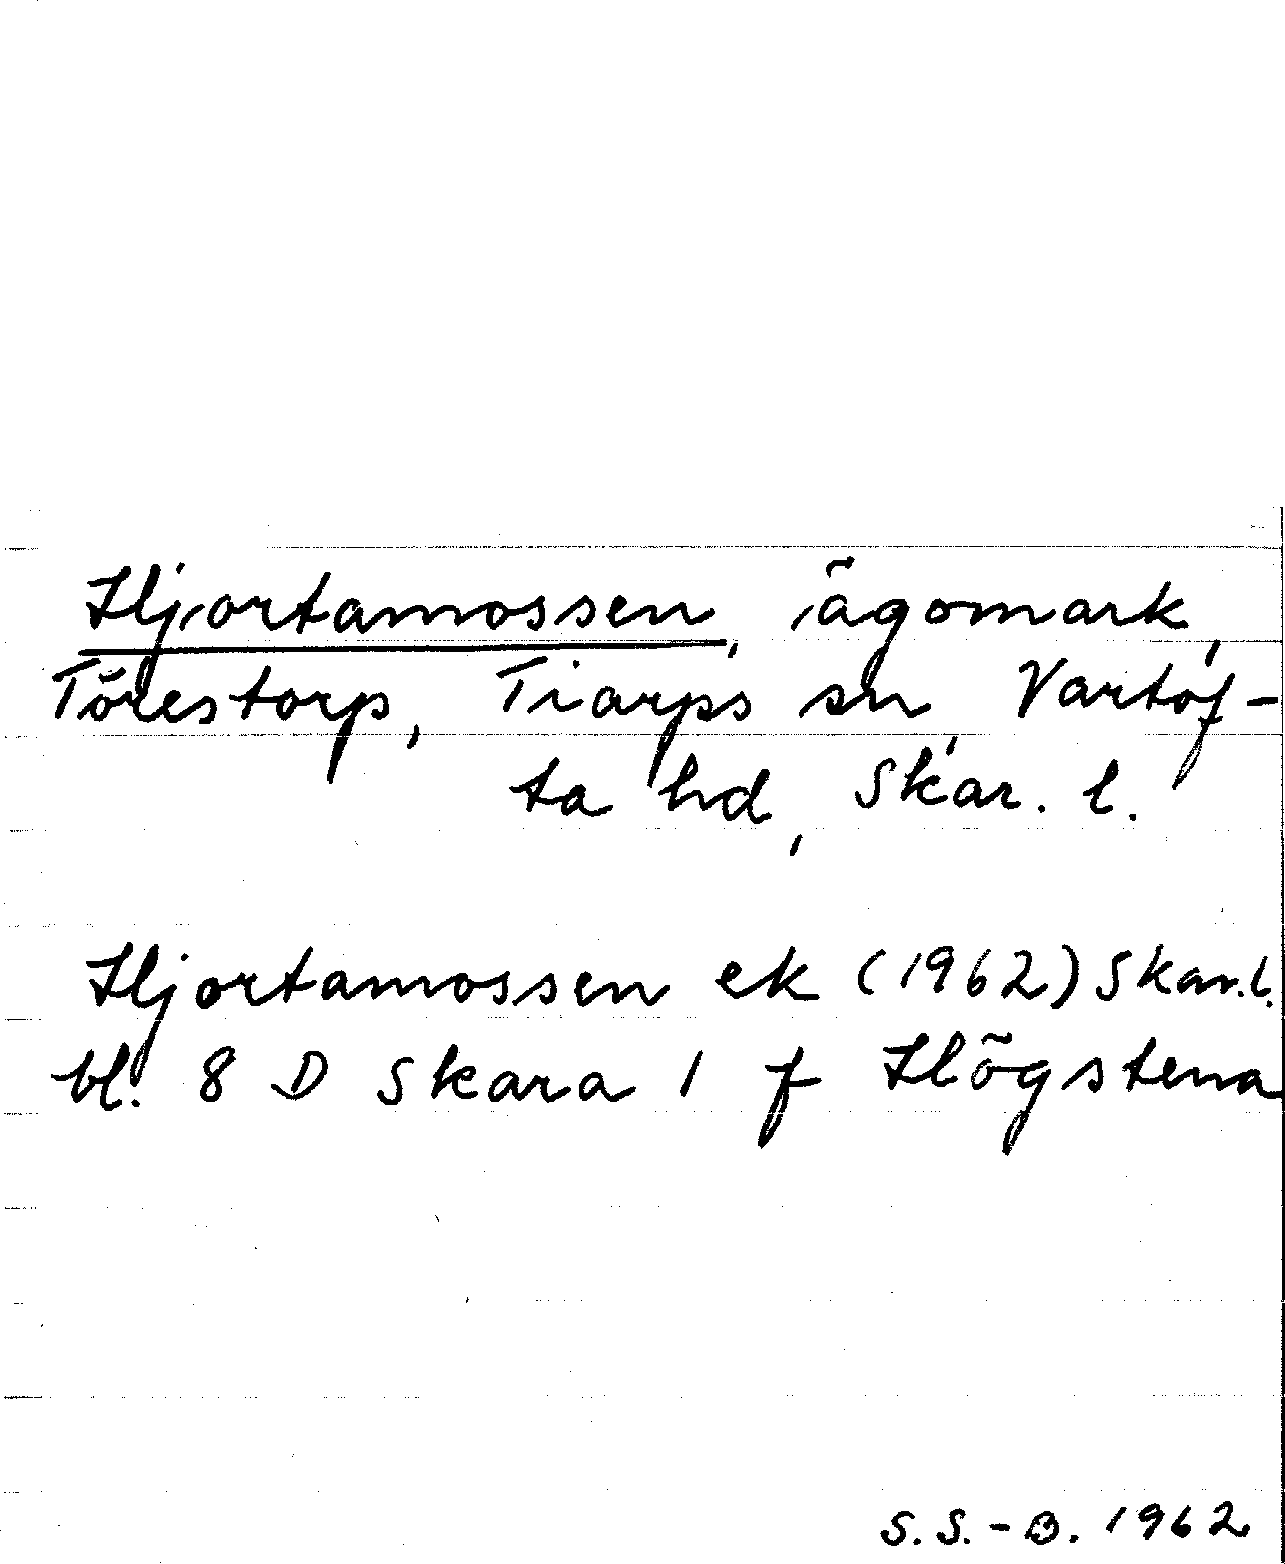 Hjortamossen, ägomark,
Törestorp, Tiarps sn, Vartof-
ta hd, Skar. l.
Hjortamossen ek (1962) Skar. l.
bl. 8 D Skara 1 f Högstena
S.S.-B. 1962